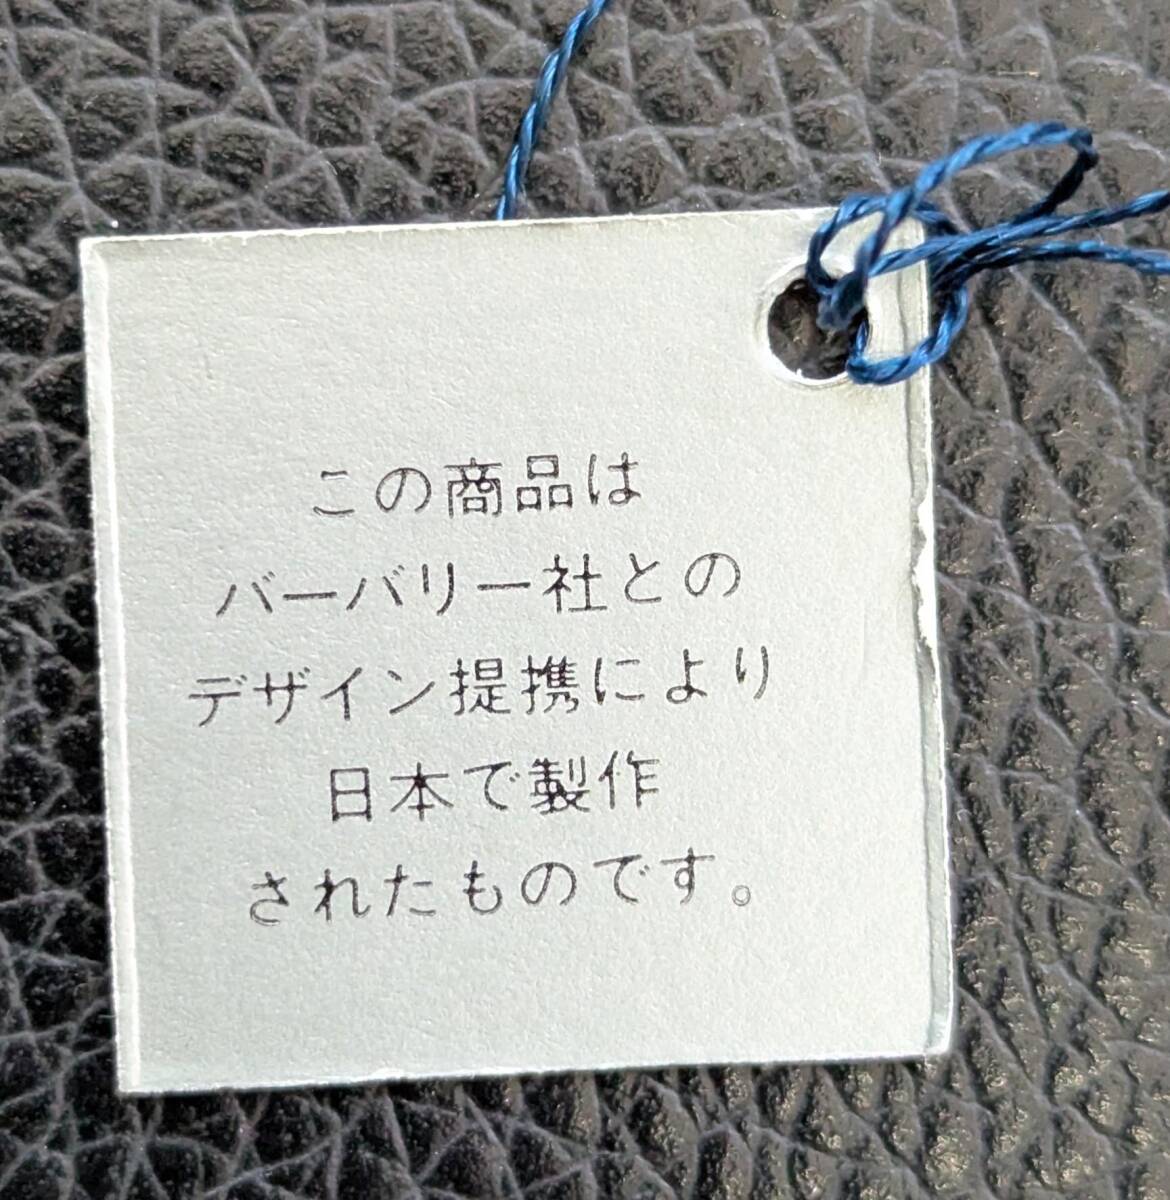 この商品は
バーバリー社との
デザイン提携により
日本で製作
されたものです。